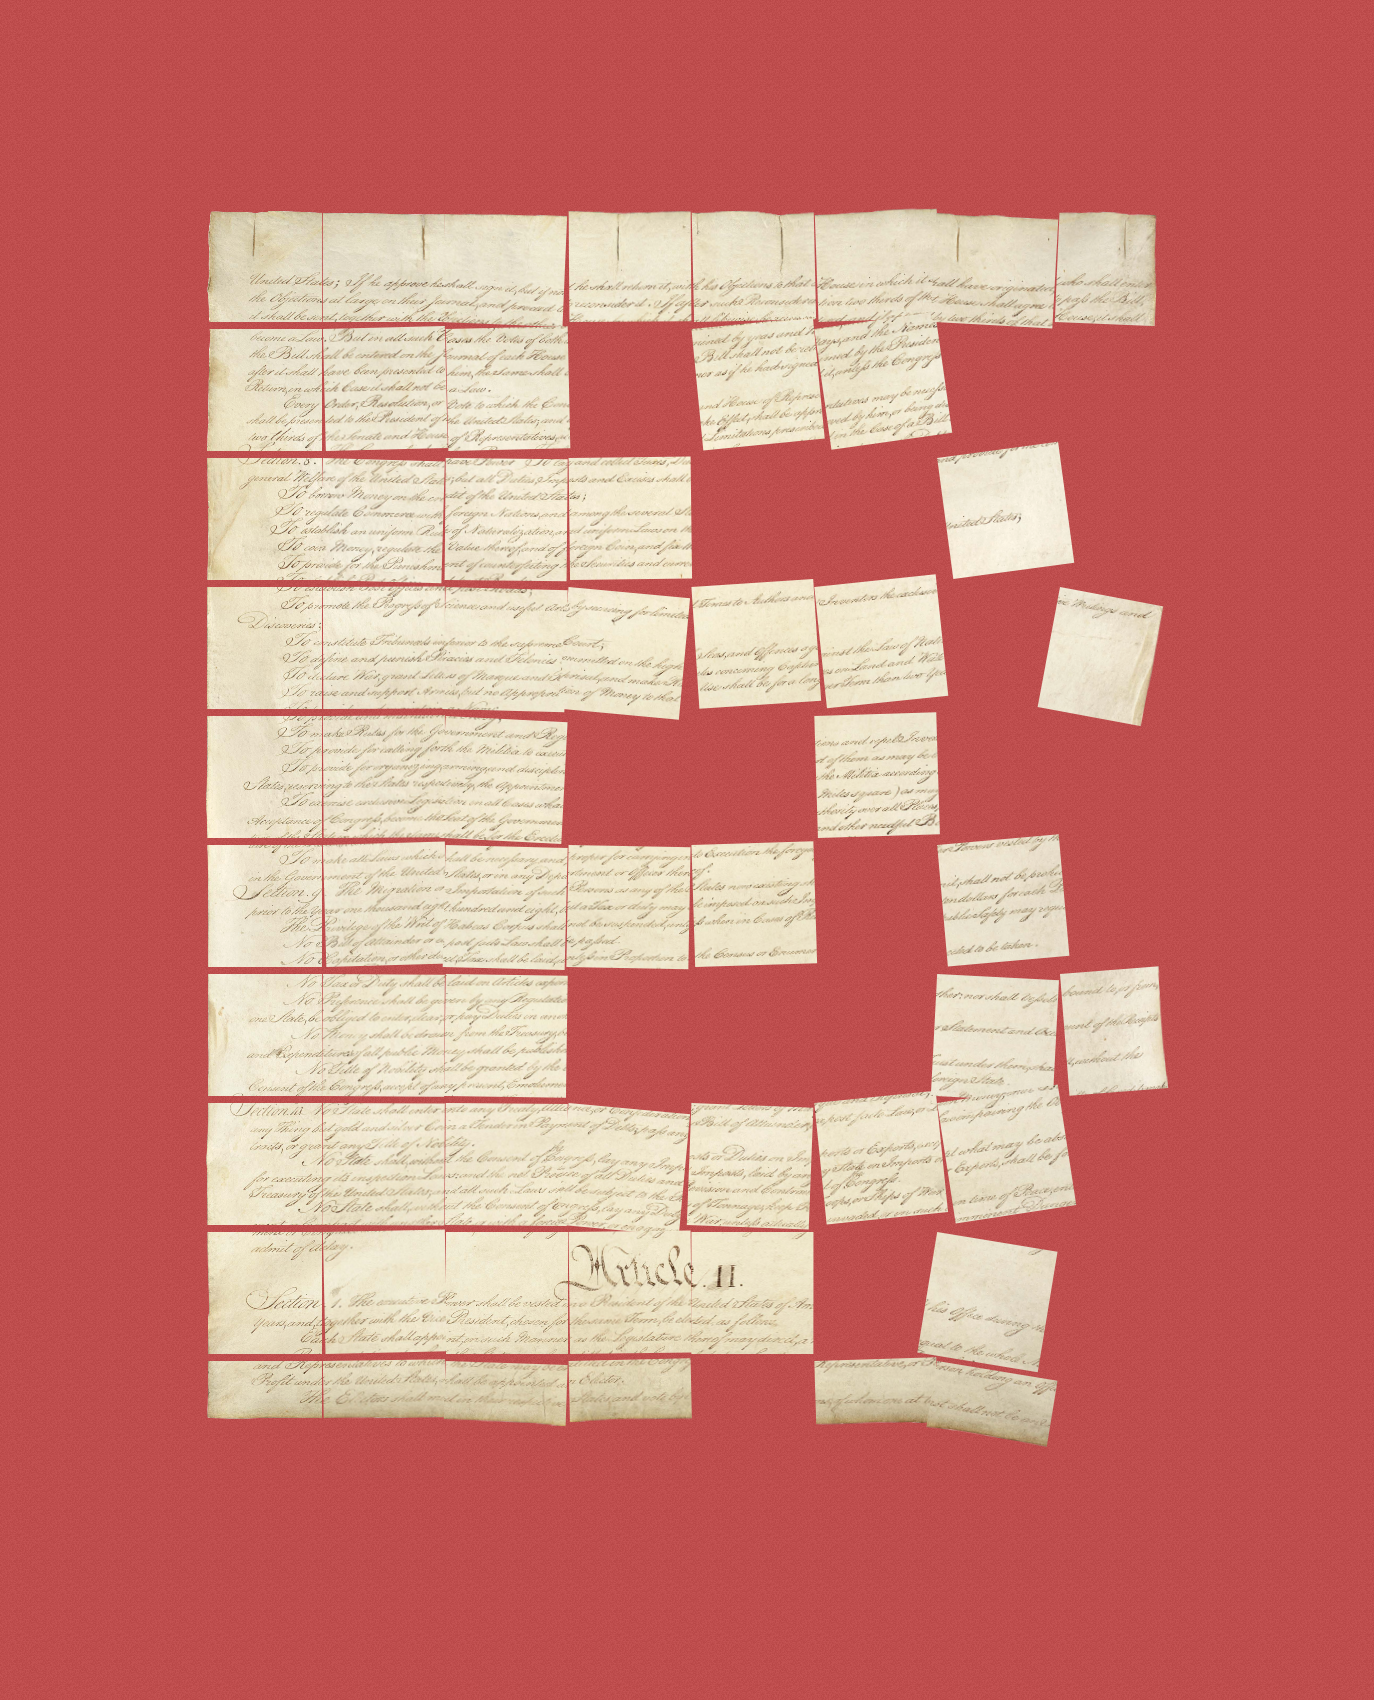 United States; If he approve he shall sign it, but if not he shall return it, with his Objections to that House in which it shall have originated, who shall enter
the Objections at large on their Journal, and proceed to reconsider it. If after such Reconsideration two thirds of that House shall agree to pass the Bill,
it shall be sent, together with the Objections, to the other House, by two thirds of that House, it shall
become a Law. But in all such Cases the Votes of both mined by yeas and Nays, and the Names
the Bill shall be entered on the Journal of each House Bill shall not be returned by the President
after it shall have been presented to him, the Same shall be ner as if he had signed it, unless the Congress
Return, in which Case it shall not be a Law.
Every Order, Resolution, or Vote to which the Con and House of Representatives may be necess
shall be presented to the President of the United States; and ke Effect, shall be approved by him, or being dis
two thirds of the Senate and House of Representatives, Limitations prescribed in the Case of a Bill.
Section. 8. The Congress shall have Power To lay and collect Taxes, and provide for the
general Welfare of the United States; but all Duties, Imposts and Excises shall be United States;
To borrow Money on the credit of the United States;
To regulate Commerce with foreign Nations, and among the several Sta
To establish an uniform Rule of Naturalization, and uniform Laws on the
To coin Money, regulate the Value thereof, and of foreign Coin, and fix the
To provide for the Punishment of counterfeiting the Securities and current
To establish Post Offices and post Roads;
To promote the Progress of Science and useful Arts, by securing for limited Times to Authors and Inventors the exclusive ve Writings and
Discoveries;
To constitute Tribunals inferior to the supreme Court;
To define and punish Piracies and Felonies committed on the high Seas, and Offences against the Law of Nations
To declare War, grant Letters of Marque and Reprisal, and make Rules concerning Captures on Land and Water
To raise and support Armies, but no Appropriation of Money to that Use shall be for a longer Term than two Years
To provide and maintain a Navy;
To make Rules for the Government and Regu
To provide for calling forth the Militia to execute tions and repel Invasions
To provide for organizing, arming, and disciplin rt of them as may be
States, reserving to the States respectively, the Appointment the Militia according
To exercise exclusive Legislation in all Cases whatso Miles square) as may
Acceptance of Congress, become the Seat of the Government thority over all Places
ture of the State in which the Same shall be, for the Erection and other needful B
To make all Laws which shall be necessary and proper for carrying into Execution the foregoing er Powers vested by th
in the Government of the United States, or in any Department or Officer thereof.
Section. 9. The Migration or Importation of such Persons as any of the States now existing sh mit, shall not be prohi
prior to the Year one thousand eight hundred and eight, but a Tax or duty may be imposed on such Imp ten dollars for each P
The Privilege of the Writ of Habeas Corpus shall not be suspended, unless when in Cases of Rebe public Safety may requi
No Bill of Attainder or ex post facto Law shall be passed.
No Capitation, or other direct, Tax shall be laid, unless in Proportion to the Census or Enumer cted to be taken.
No Tax or Duty shall be laid on Articles export
No Preference shall be given by any Regulation ther: nor shall Vessels bound to, or from,
one State, be obliged to enter, clear, or pay Duties in anot
No Money shall be drawn from the Treasury, bu r Statement and Acc ount of the Receipts
and Expenditures of all public Money shall be publishe
No Title of Nobility shall be granted by the U rust under them, shall, without the
Consent of the Congress, accept of any present, Emolument foreign State.
Section. 10. No State shall enter into any Treaty, Alliance, or Confederation; grant Letters of M
any Thing but gold and silver Coin a Tender in Payment of Debts; pass any Bill of Attainder, ex post facto Law, or L impairing the Ob
tracts, or grant any Title of Nobility.
No State shall, without the Consent of the Congress, lay any Imposts or Duties on Imports or Exports, except what may be abso
for executing its inspection Laws: and the net Produce of all Duties and Imposts, laid by any State on Imports or Exports, shall be for
Treasury of the United States; and all such Laws shall be subject to the Revision and Controul of Congress.
No State shall, without the Consent of Congress, lay any Duty of Tonnage, keep Troops, or Ships of War in time of Peace, en
ment or Compact with another State, or with a foreign Power, or engage in War, unless actually invaded, or in such imminent Danger
admit of delay.
Article. II.
Section. 1. The executive Power shall be vested in a President of the United States of Am his Office during
Years, and, together with the Vice President, chosen for the same Term, be elected, as follows
Each State shall appoint, in such Manner as the Legislature thereof may direct, a equal to the whole
and Representatives to which the State may be entitled in the Congress Representative, or Person holding an Offi
Profit under the United States, shall be appointed an Elector.
The Electors shall meet in their respective States, and vote by ons, of whom one at least shall not be an